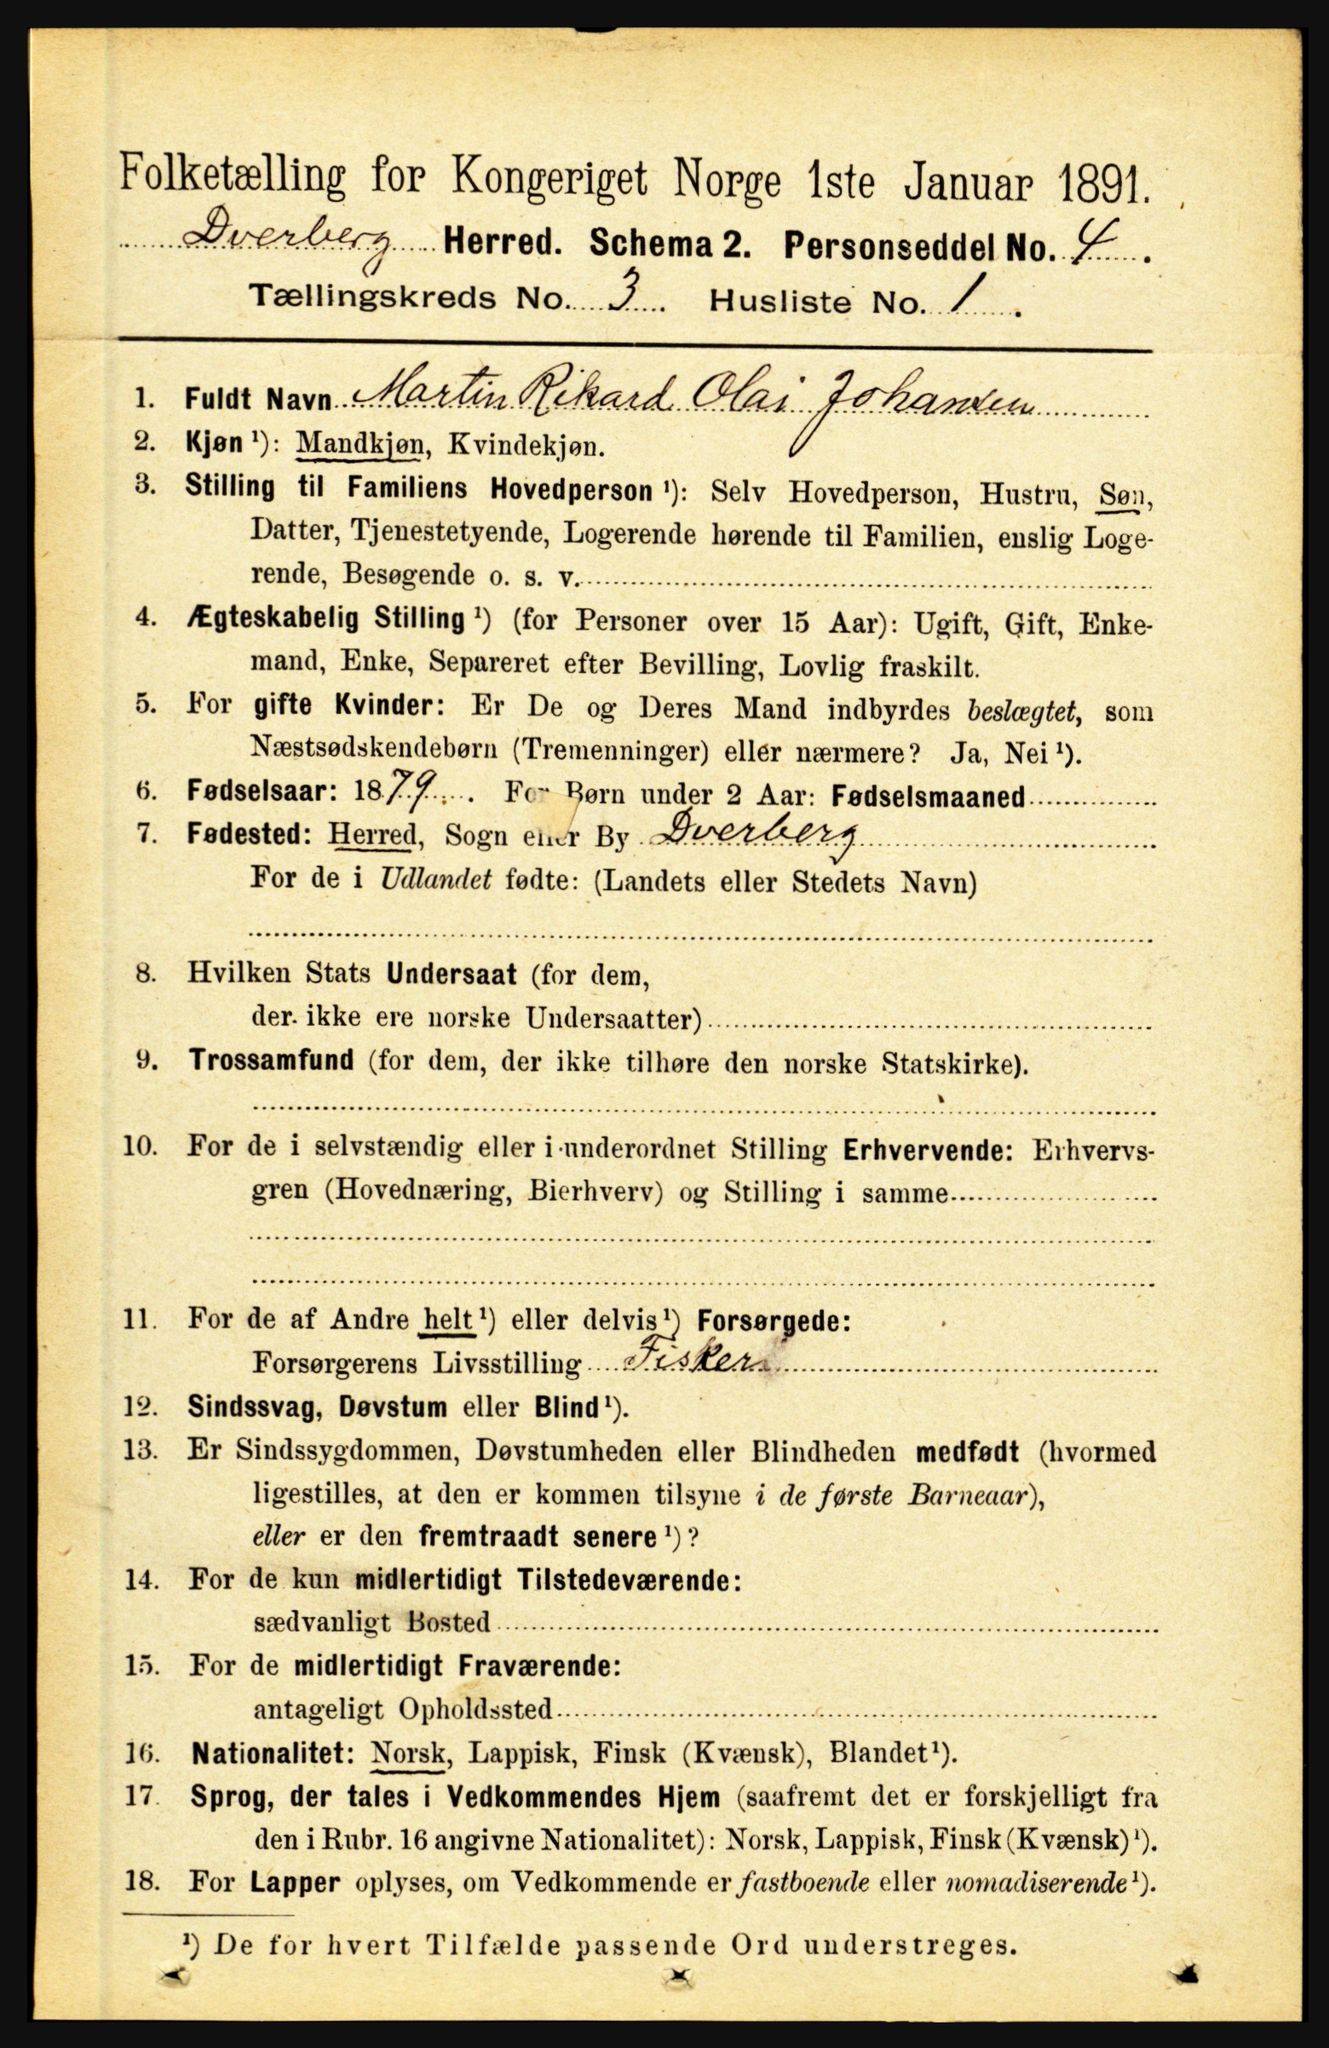 Folketælling for Kongeriget Norge 1ste Januar 1891.
Dverberg Herred. Schema 2. Personseddel No. 4.
Tællingskreds No. 3. Husliste No. 1.
1. Fuldt Navn Martin Rikard Olai Johansen
2. Kjøn ¹): Mandkjøn, Kvindekjøn.
3. Stilling til Familiens Hovedperson ¹): Selv Hovedperson, Hustru, Søn,
Datter, Tjenestetyende, Logerende hørende til Familien, enslig Loge-
rende, Besøgende o. s. v.
4. Ægteskabelig Stilling ¹) (for Personer over 15 Aar): Ugift, Gift, Enke-
mand, Enke, Separeret efter Bevilling, Lovlig fraskilt.
5. For gifte Kvinder: Er De og Deres Mand indbyrdes beslægtet, som
Næstsødskendebørn (Tremenninger) eller nærmere? Ja, Nei ¹).
6. Fødselsaar: 1879. For Børn under 2 Aar: Fødselsmaaned
7. Fødested: Herred, Sogn eller By Dverberg
For de i Udlandet fødte: (Landets eller Stedets Navn)
8. Hvilken Stats Undersaat (for dem,
der ikke ere norske Undersaatter)
9. Trossamfund (for dem, der ikke tilhøre den norske Statskirke).
10. For de i selvstændig eller i underordnet Stilling Erhvervende: Erhvervs-
gren (Hovednæring, Bierhverv) og Stilling i samme
11. For de af Andre helt ¹) eller delvis ¹) Forsørgede:
Forsørgerens Livsstilling Fisker
12. Sindssvag, Døvstum eller Blind ¹).
13. Er Sindssygdommen, Døvstumheden eller Blindheden medfødt (hvormed
ligestilles, at den er kommen tilsyne i de første Barneaar),
eller er den fremtraadt senere ¹)?
14. For de kun midlertidigt Tilstedeværende:
sædvanligt Bosted
15. For de midlertidigt Fraværende:
antageligt Opholdssted
16. Nationalitet: Norsk, Lappisk, Finsk (Kvænsk), Blandet ¹).
17. Sprog, der tales i Vedkommendes Hjem (saafremt det er forskjelligt fra
den i Rubr. 16 angivne Nationalitet): Norsk, Lappisk, Finsk (Kvænsk) ¹).
18. For Lapper oplyses, om Vedkommende er fastboende eller nomadiserende ¹).
¹) De for hvert Tilfælde passende Ord understreges.